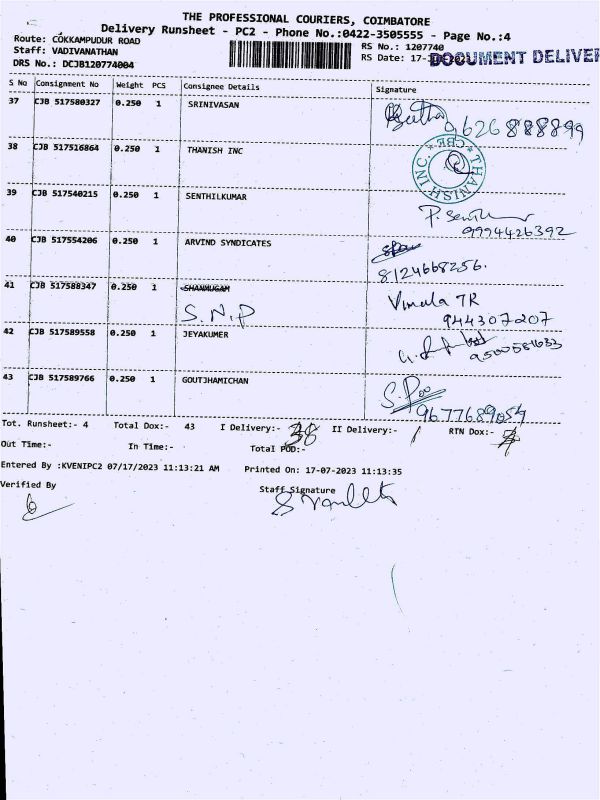 THE PROFESSIONAL COURIERS, COIMBATORE
Delivery Runsheet - PC2 - Phone No.:0422-3505555 - Page No.:4
Route: COKKAMPUDUR ROAD
RS No.: 1207740
Staff: VADIVANATHAN
RS Date: 17-
DOCUMENT DELIVER
DRS No.: DCJB120774004
S No Consignment No Weight PCS Consignee Details Signature
37 CJB 517580327 0.250 1 SRINIVASAN
9626888899
38 CJB 517516864 0.250 1 THANISH INC
THANISH INC. * CBE *
39 CJB 517540215 0.250 1 SENTHILKUMAR
9994426392
40 CJB 517554206 0.250 1 ARVIND SYNDICATES
8124668256.
41 CJB 517588347 0.250 1 SHANMUGAM Vimala TR
S.N.P 944307207
42 CJB 517589558 0.250 1 JEYAKUMER
43 CJB 517589766 0.250 1 GOUTJHAMICHAN
9677689054
Tot. Runsheet:- 4 Total Dox:- 43 I Delivery:- 38 II Delivery:- 1 RTN Dox:-
Out Time:- In Time:- Total POD:-
Entered By :KVENIPC2 07/17/2023 11:13:21 AM Printed On: 17-07-2023 11:13:35
Verified By Staff Signature